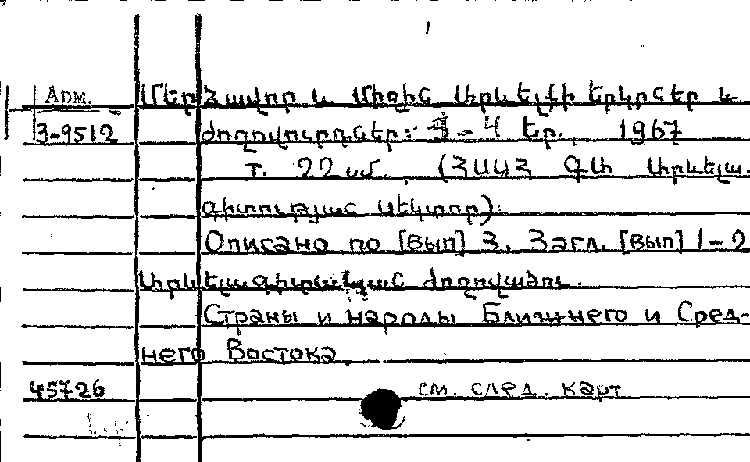 Арм.
Մերձավոր և Միջին Արևելքի երկրներ և
3-9512
ժողովուրդներ: 3-4 Եր., 1967
т. 22 սմ. (ՀՍՍՀ ԳԱ Արևելա-
գիտության սեկտոր):
Описано по [вып] 3. Загл. [вып] 1-2
Արևելագիտական ժողովածու.
Страны и народы Ближнего и Сред-
него Востока.
45726
см. след. карт